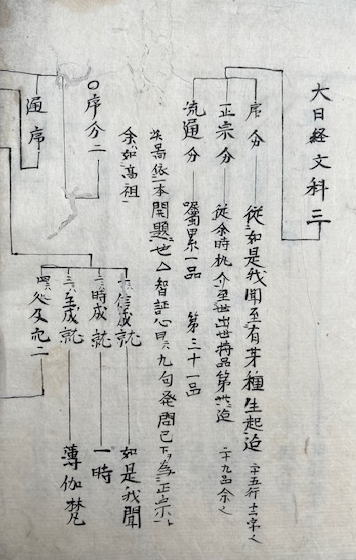 大日経文科 三
序分 従如是我聞至有芽種生起迄 二十五行十三字〻
正宗分 従余時執介至世出世持品第卅迄 二十九品余〻
流通分 嘱累一品 第三十一品
依一本開題也△智証心目ハ九句発問已下為正宗
余如高祖
一信成就 如是我聞
二時成就 一時
三主成就 薄伽梵
四処及衆二
〇序分二
通序